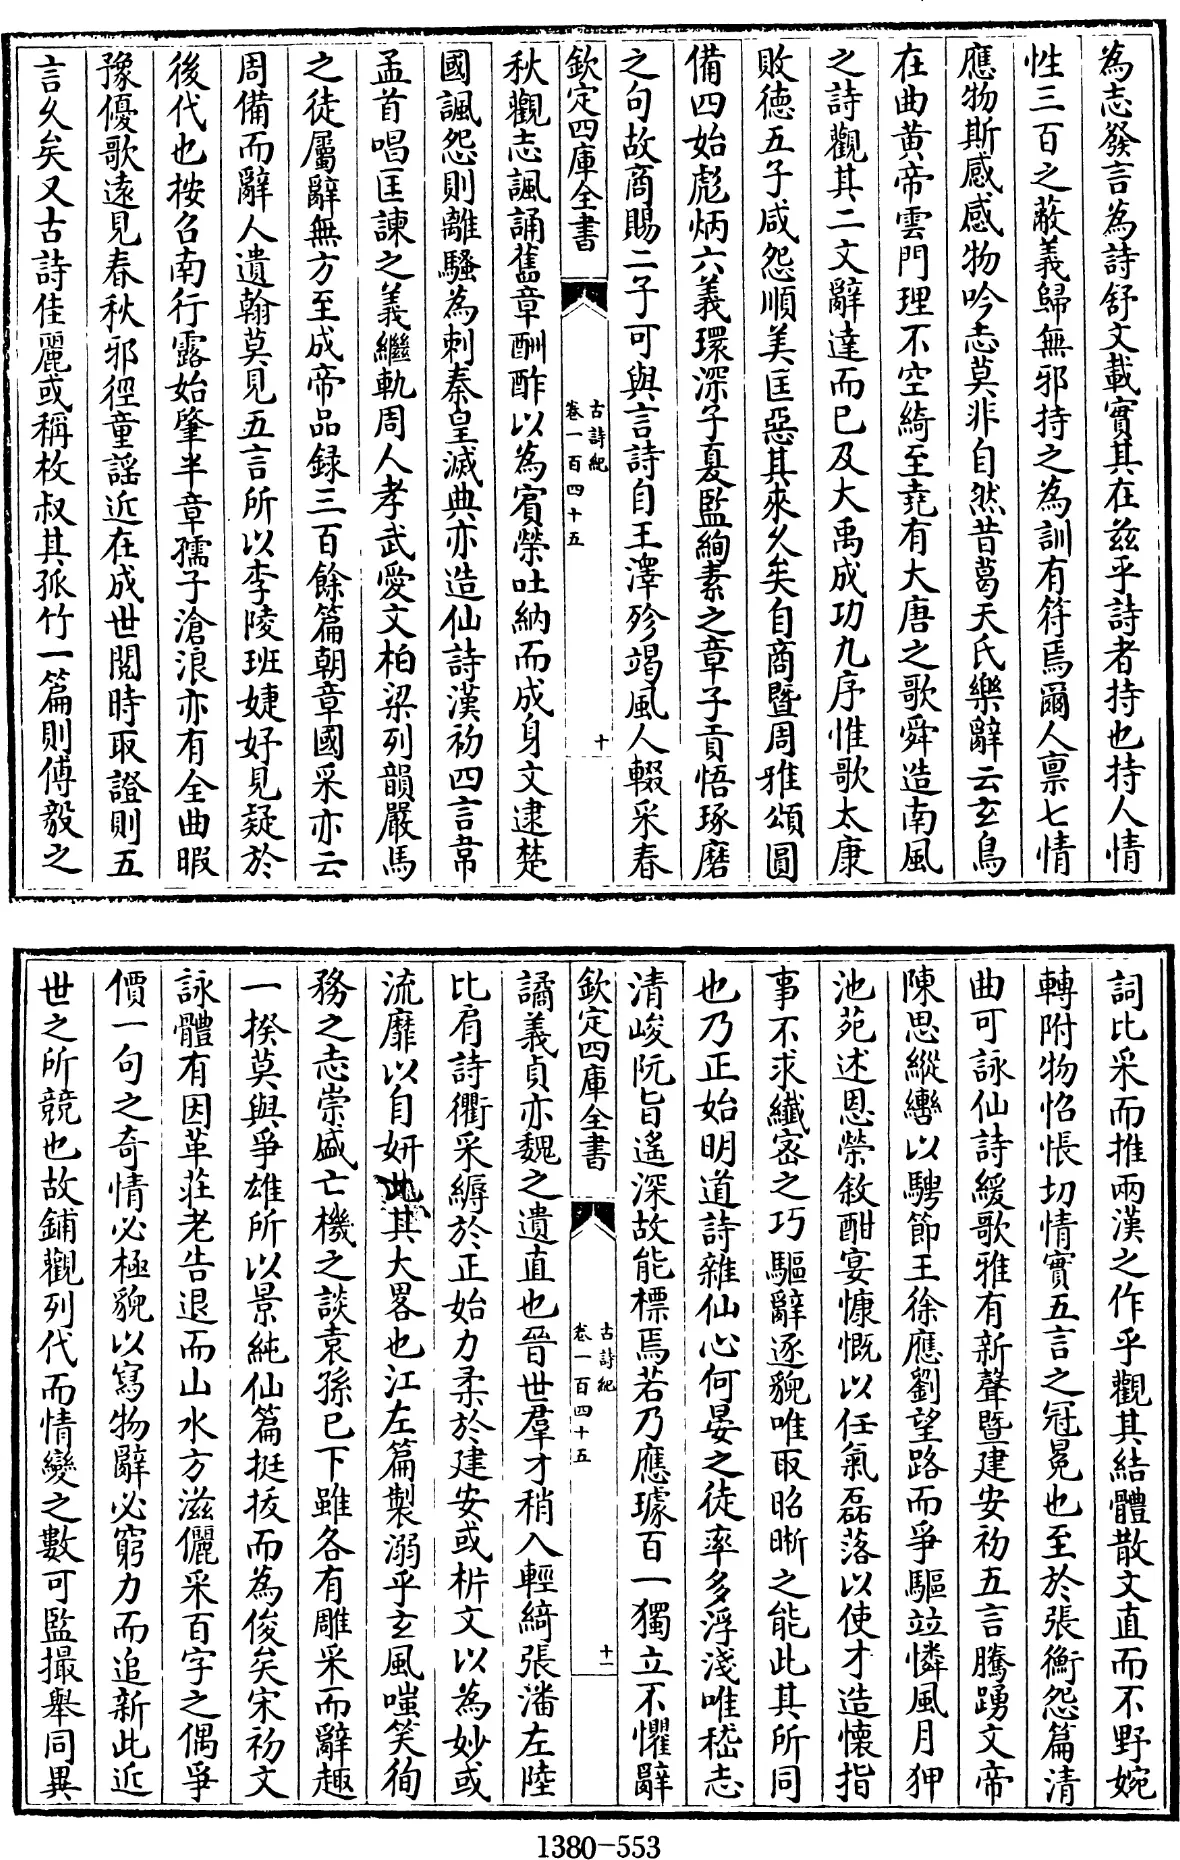 為志發言為詩舒文載實其在兹乎詩者持也持人情
性三百之蔽義歸無邪持之為訓有符焉爾人禀七情
應物斯感感物吟志莫非自然昔葛天氏樂辭云玄鳥
在曲黄帝雲門理不空綺至堯有大唐之歌舜造南風
之詩觀其二文辭達而已及大禹成功九序惟歌太康
敗德五子咸怨順美匡惡其來久矣自商暨周雅頌圓
備四始彪炳六義環深子夏監絢素之章子貢悟琢磨
之句故商賜二子可與言詩自王澤殄竭風人輟采春
欽定四庫全書
古詩紀
卷一百四十五
十
秋觀志諷誦舊章酬酢以為賓榮吐納而成身文逮楚
國諷怨則離騷為刺秦皇滅典亦造仙詩漢初四言韋
孟首唱匡諫之義繼軌周人孝武愛文柏梁列韻嚴馬
之徒屬辭無方至成帝品録三百餘篇朝章國采亦云
周備而辭人遺翰莫見五言所以李陵班婕妤見疑於
後代也按召南行露始肇半章孺子滄浪亦有全曲暇
豫優歌遠見春秋邪徑童謡近在成世閲時取證則五
言久矣又古詩佳麗或稱枚叔其孤竹一篇則傅毅之
詞比采而推兩漢之作乎觀其結體散文直而不野婉
轉附物怊悵切情實五言之冠冕也至於張衡怨篇清
曲可詠仙詩緩歌雅有新聲暨建安初五言騰踴文帝
陳思縱轡以騁節王徐應劉望路而爭驅竝憐風月狎
池苑述恩榮敘酣宴慷慨以任氣磊落以使才造懷指
事不求纖宻之巧驅辭逐貌唯取昭晣之能此其所同
也乃正始明道詩雜仙心何晏之徒率多浮淺唯嵇志
清峻阮旨遙深故能標焉若乃應璩百一獨立不懼辭
欽定四庫全書
古詩紀
卷一百四十五
十一
譎義貞亦魏之遺直也晉世羣才稍入輕綺張潘左陸
比肩詩衢采縟於正始力柔於建安或枿文以為妙或
流靡以自妍此其大畧也江左篇製溺乎玄風嗤笑徇
務之志崇盛亡機之談袁孫已下雖各有雕采而辭趣
一揆莫與爭雄所以景純仙篇挺拔而為俊矣宋初文
詠體有因革莊老告退而山水方滋儷采百字之偶爭
價一句之奇情必極貌以寫物辭必窮力而追新此近
世之所競也故鋪觀列代而情變之數可監撮舉同異
1380-553